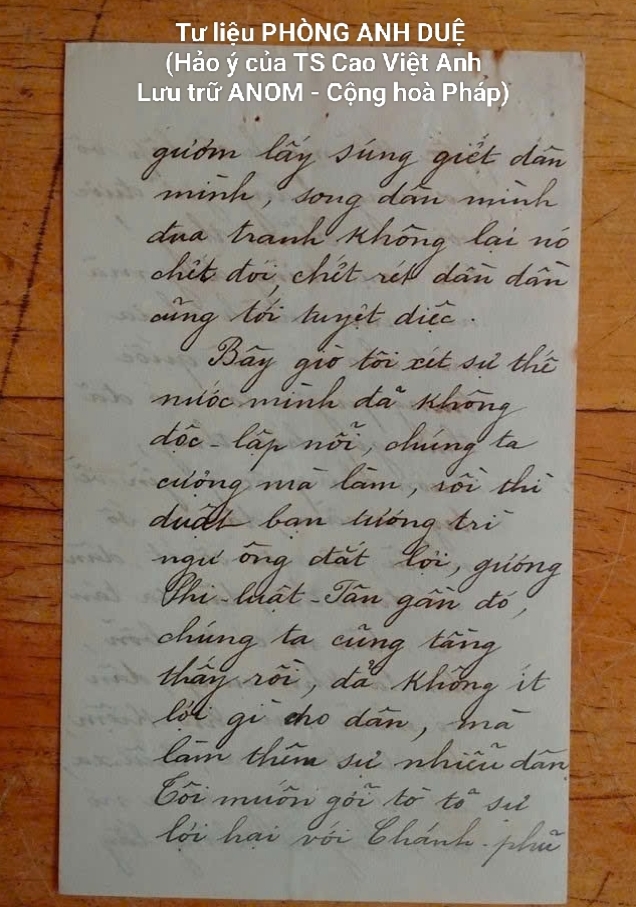 Tư liệu PHÒNG ANH DUỆ
(Hảo ý của TS Cao Việt Anh
Lưu trữ ANOM - Cộng hoà Pháp)
gươm lấy súng giết dân
mình, song dân mình
đua tranh không lại nó
chết đói, chết rét dần dần
cũng tới tuyệt diệc.
Bây giờ tôi xét sự thế
nước mình đã không
độc-lập nỗi, chúng ta
cưởng mà làm, rồi thì
duật bạn tương trì
ngư ông đắt lợi, gương
Phi-luật-Tân gần đó,
chúng ta cũng tầng
thấy rồi, đả không ít
lợi gì cho dân, mà
làm thêm sự nhiễu dân
Tôi muốn gởi tờ tỏ sự
lợi hại với Chánh-phũ